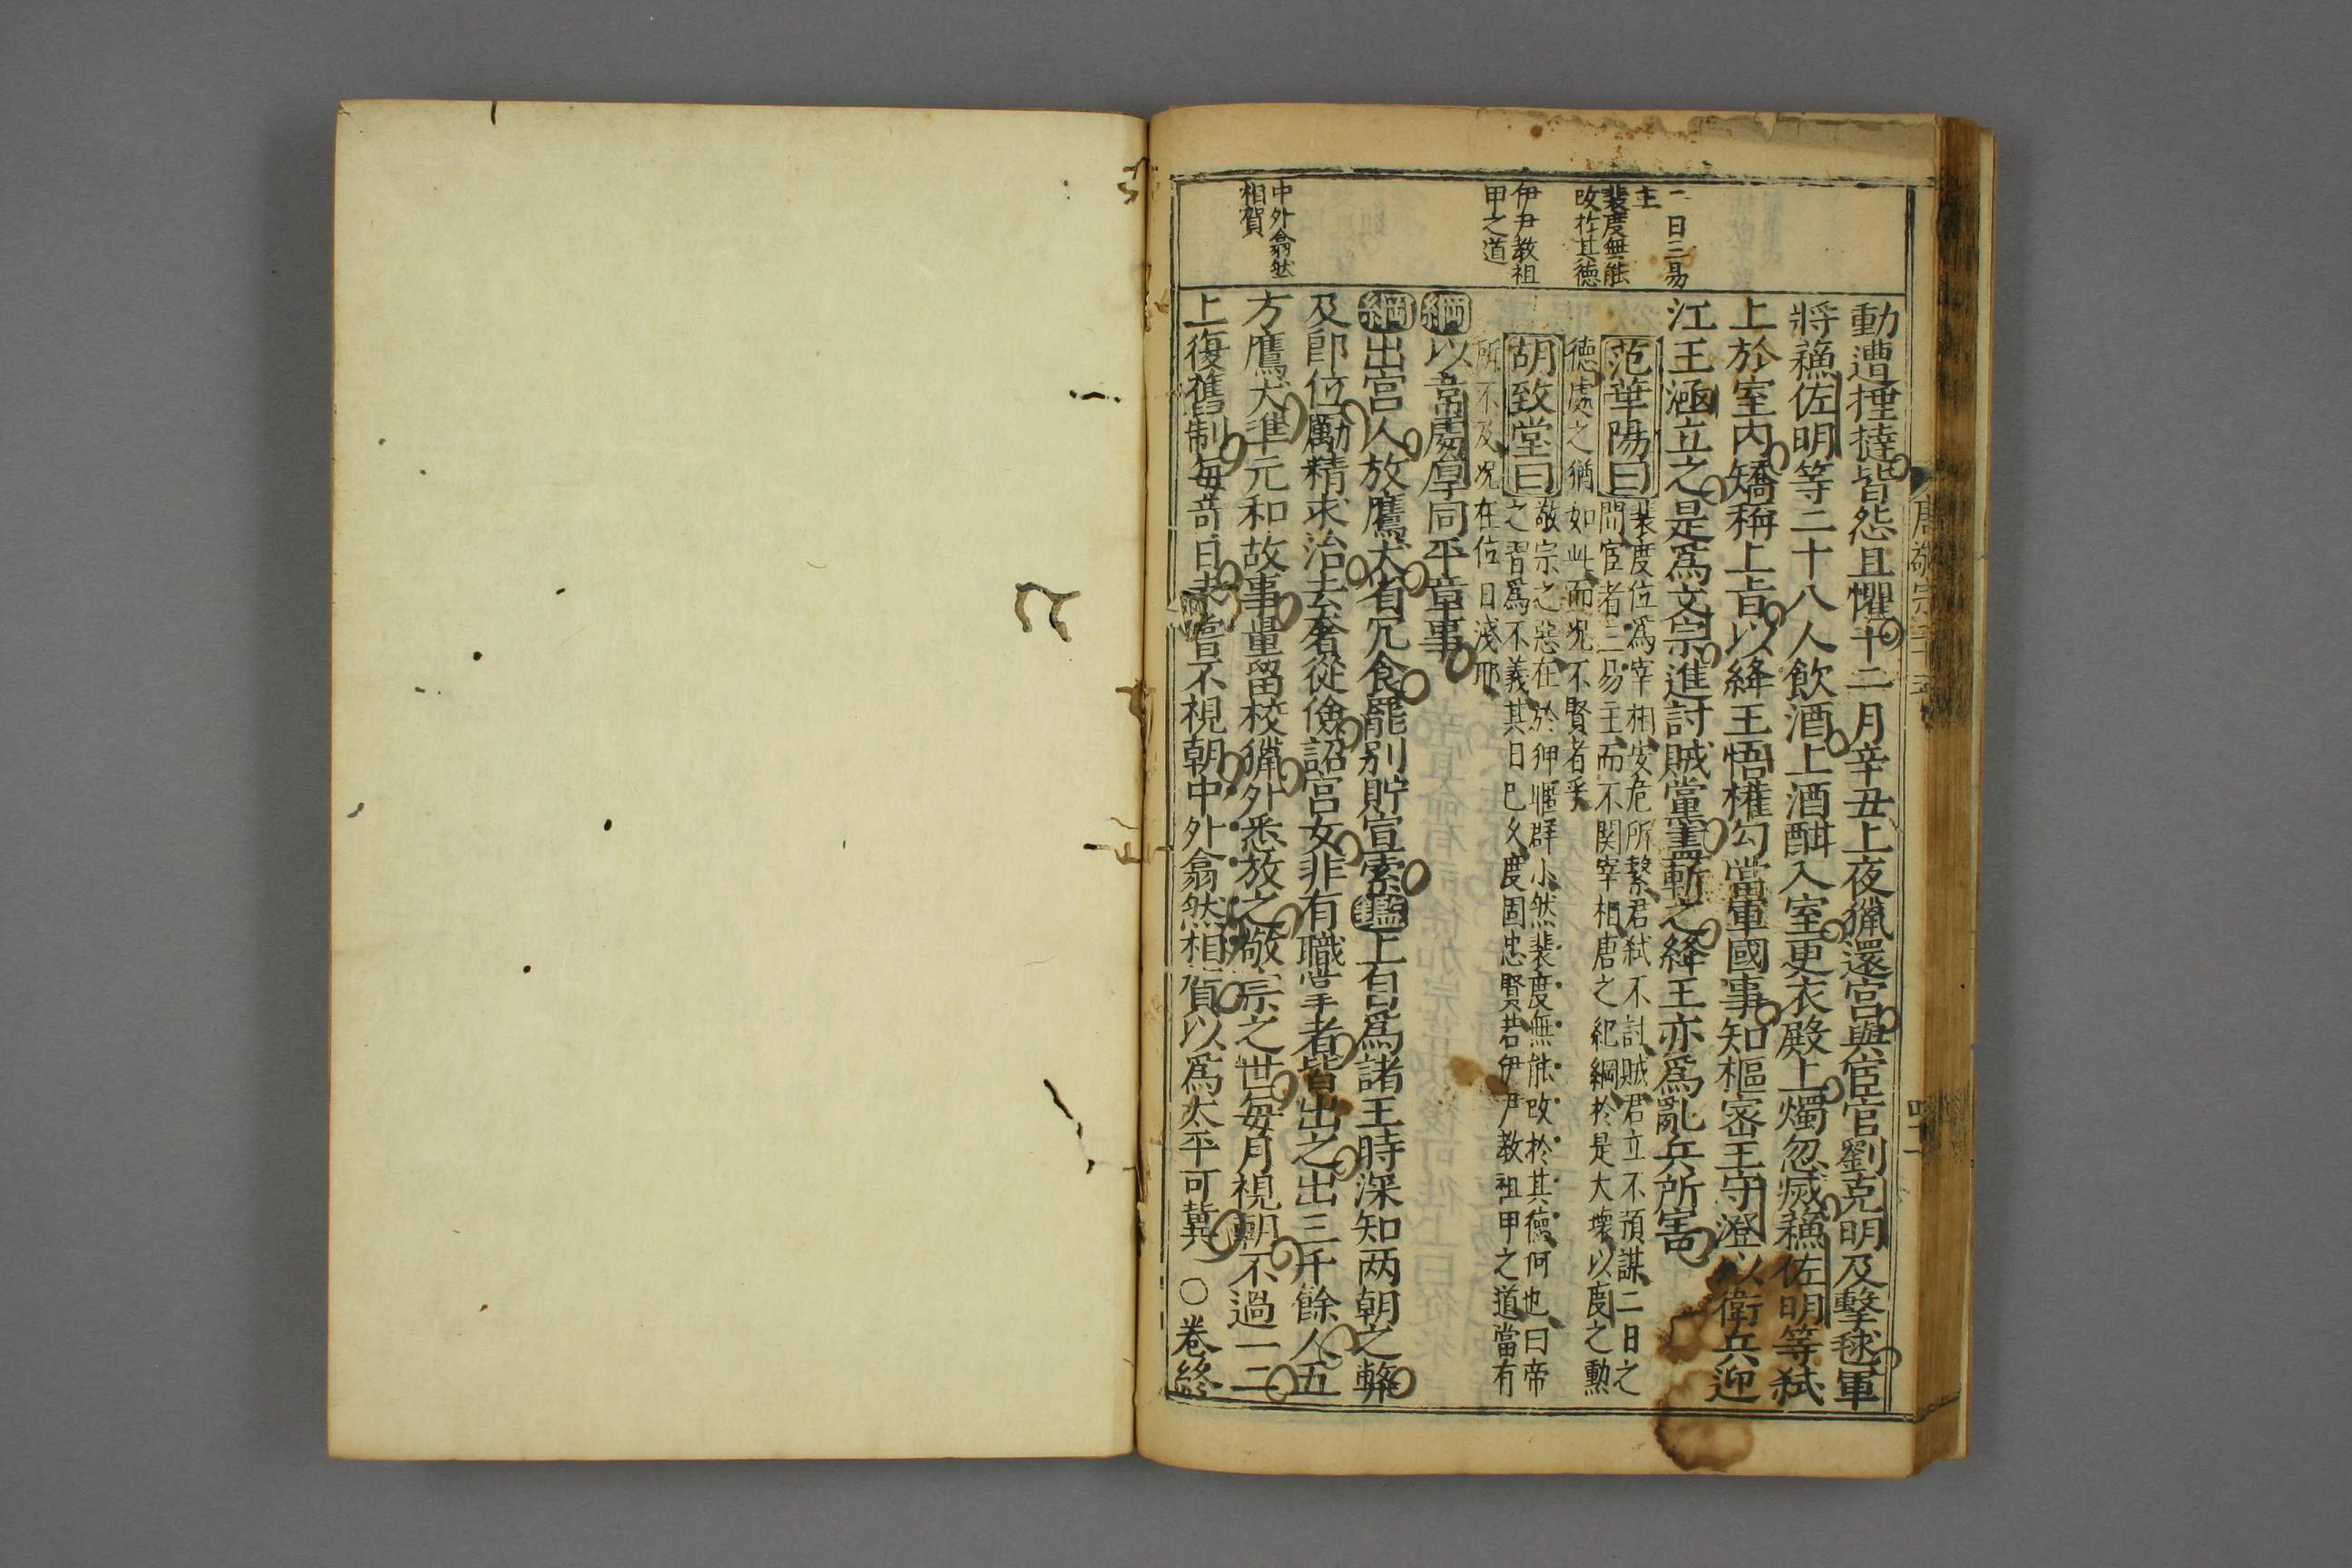 二日三易
主
裴度無能
改於其德
伊尹教祖
甲之道
中外翕然
相賀
動遭捶撻皆怨且懼十二月辛丑上夜獵還宮與宦官劉克明及擊毬軍
將蘓佐明等二十八人飲酒上酒酣入室更衣殿上燭忽滅蘓佐明等弑
上於室内矯稱上旨以絳王悟權勾當軍國事知樞密王守澄以衛兵迎
江王涵立之是爲文宗進討賊黨盡斬之絳王亦爲亂兵所害
范華陽曰裴度位爲宰相安危所繫君弑不討賊君立不預謀二日之
間宦者三易主而不関宰相唐之紀綱於是大壊以度之勲
德處之猶如此而况不賢者乎
胡致堂曰敬宗之惡在於狎暱群小然裴度無能改於其德何也曰帝
之習爲不義其日已久度固忠賢若伊尹教祖甲之道當有
所不及况在位日淺耶
綱以韋處厚同平章事
綱出宮人放鷹犬省冗食罷别貯宣索鑑上自爲諸王時深知两朝之弊
及卽位勵精求治去奢從儉詔宮女非有職掌者皆出之出三千餘人五
方鷹犬準元和故事量留校獵外悉放之敬宗之世每月視朝不過一二
上復舊制每奇日未嘗不視朝中外翕然相賀以爲太平可冀　○卷終
唐敬宗